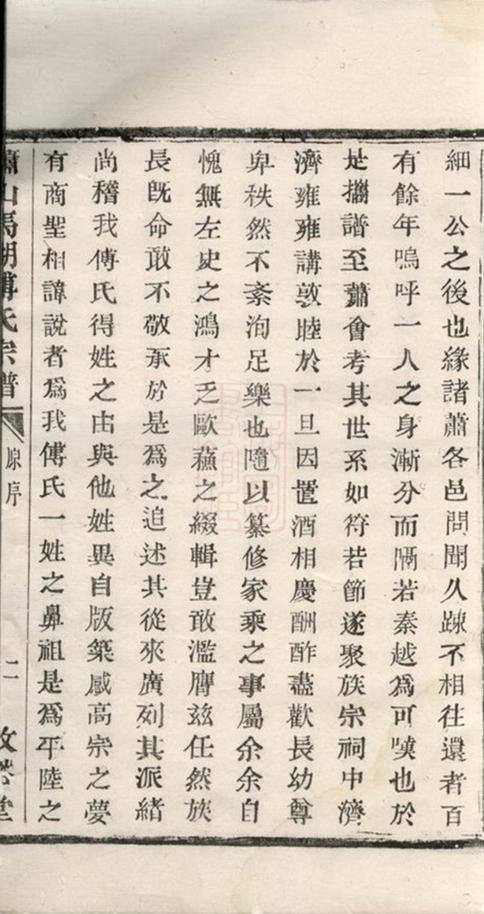 細一公之後也緣諸蕭各邑問聞久踈不相往還者百
有餘年嗚呼一人之身漸分而隔若秦越為可嘆也於
是攜譜至蕭會考其世系如符若節遂聚族宗祠中濟
濟雍雍講敦睦於一旦因置酒相慶酬酢盡歡長幼尊
卑秩然不紊洵足樂也隨以纂修家乘之事屬余余自
愧無左史之鴻才乏歐蘇之綴輯豈敢濫膺兹任然族
長既命敢不敬承於是為之追述其從來廣列其派緒
尚稽我傅氏得姓之由與他姓異自版築感高宗之夢
有商聖相諱說者為我傅氏一姓之鼻祖是為平陸之
蕭山馬湖傅氏宗譜 原序 二 堂